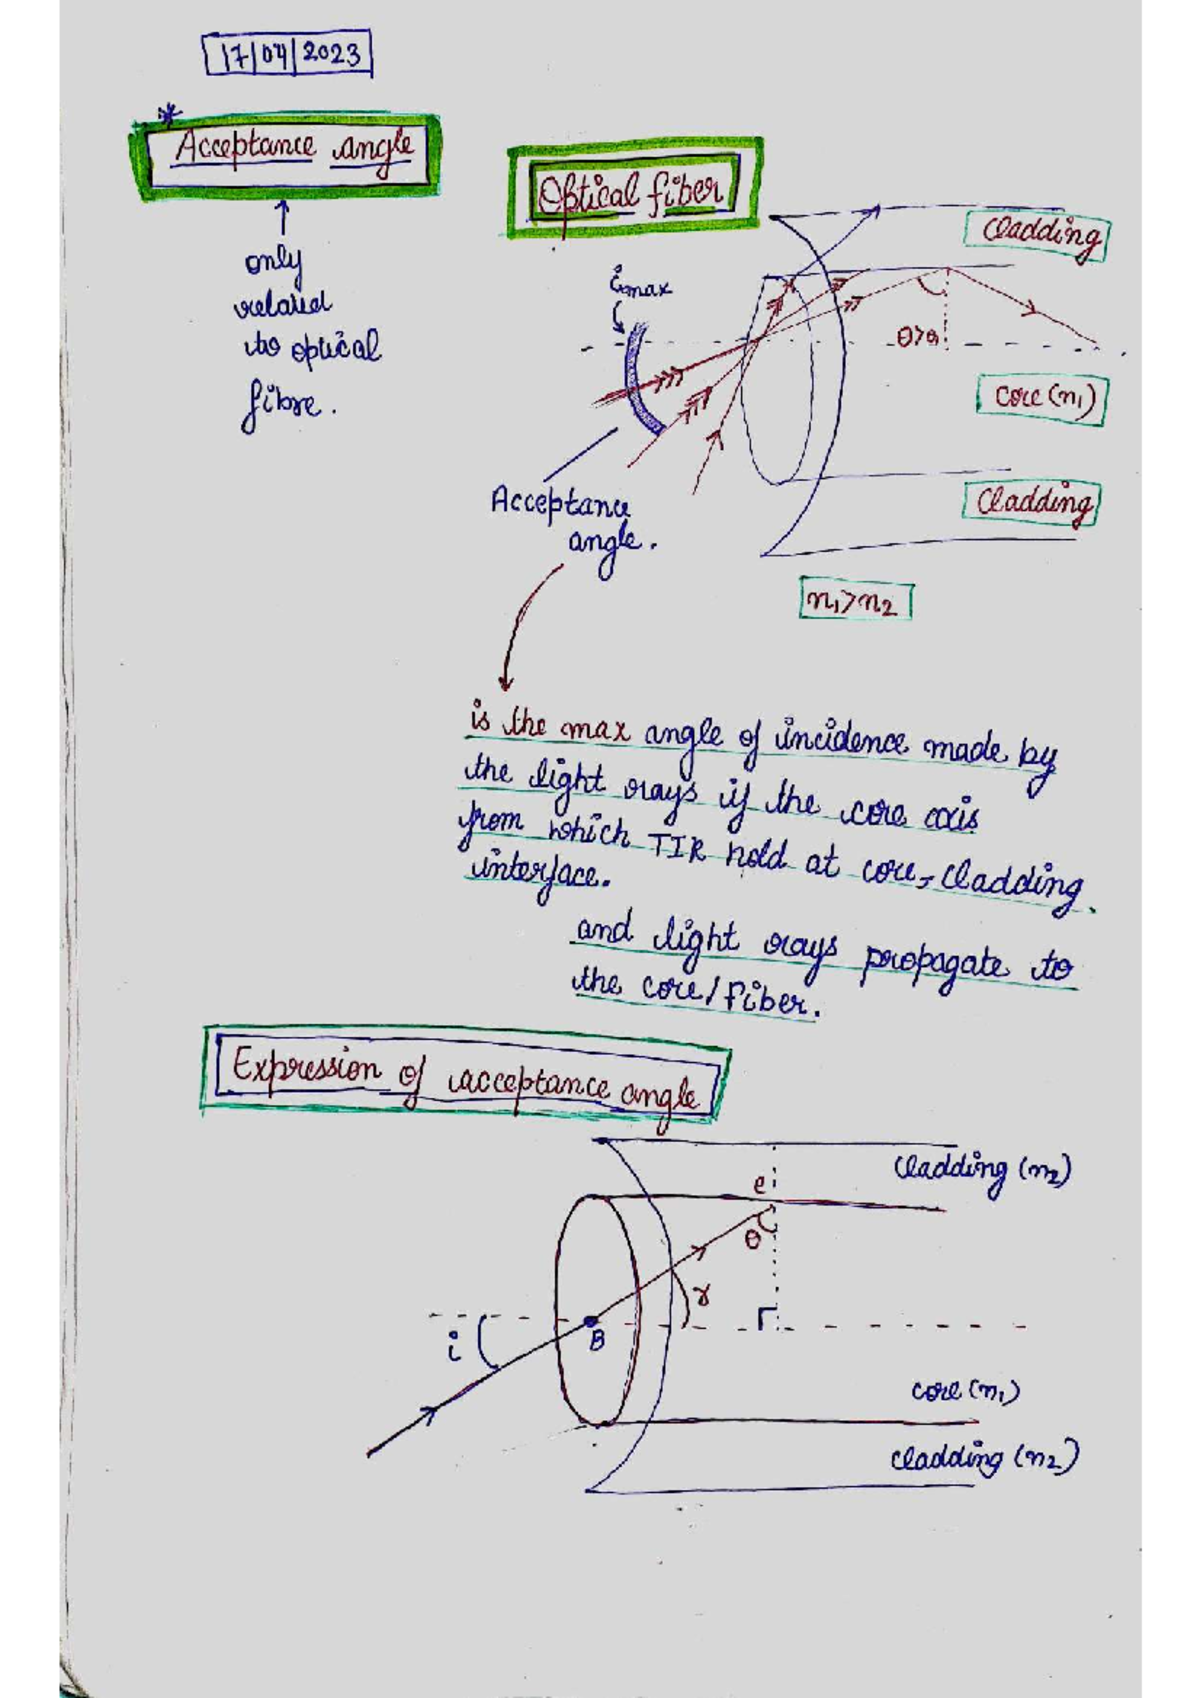 17/04/2023
*
Acceptance angle
only
related
to optical
fibre.
Optical fiber
imax
Cladding
θ>θ
Core (n1)
Cladding
Acceptance
angle.
n1>n2
is the max angle of incidence made by
the light rays if the core axis
from which TIR hold at core-cladding.
interface.
and light rays propagate to
the core/fiber.
Expression of acceptance angle
Cladding (n2)
e
θ
r
i
B
core (n1)
cladding (n2)